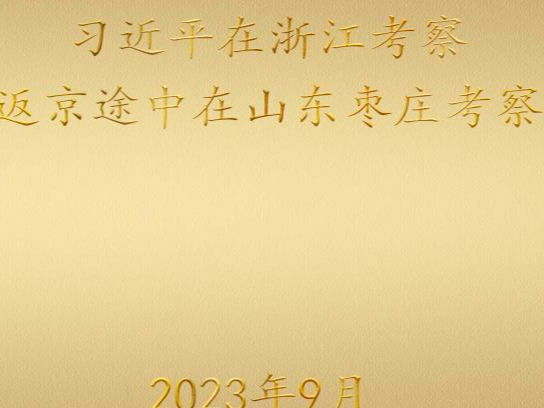 习近平在浙江考察
返京途中在山东枣庄考察
2023年9月